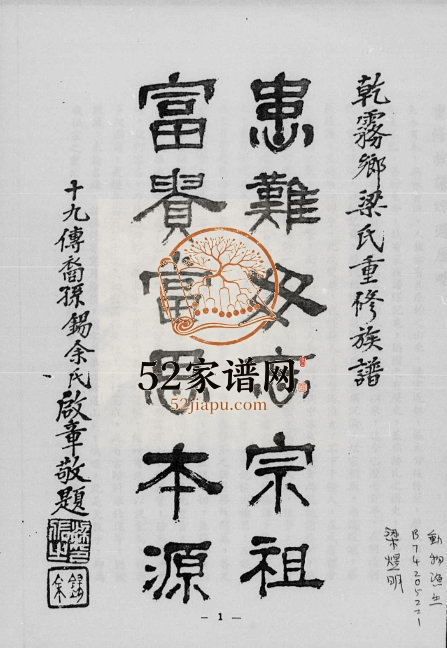 乾霧鄉梁氏重修族譜
患難毋忘宗祖
富貴當思本源
十九傳裔孫錫余氏啟章敬題
錫余
52家谱网
52jiapu.com
B74205221
梁煜明
— 1 —